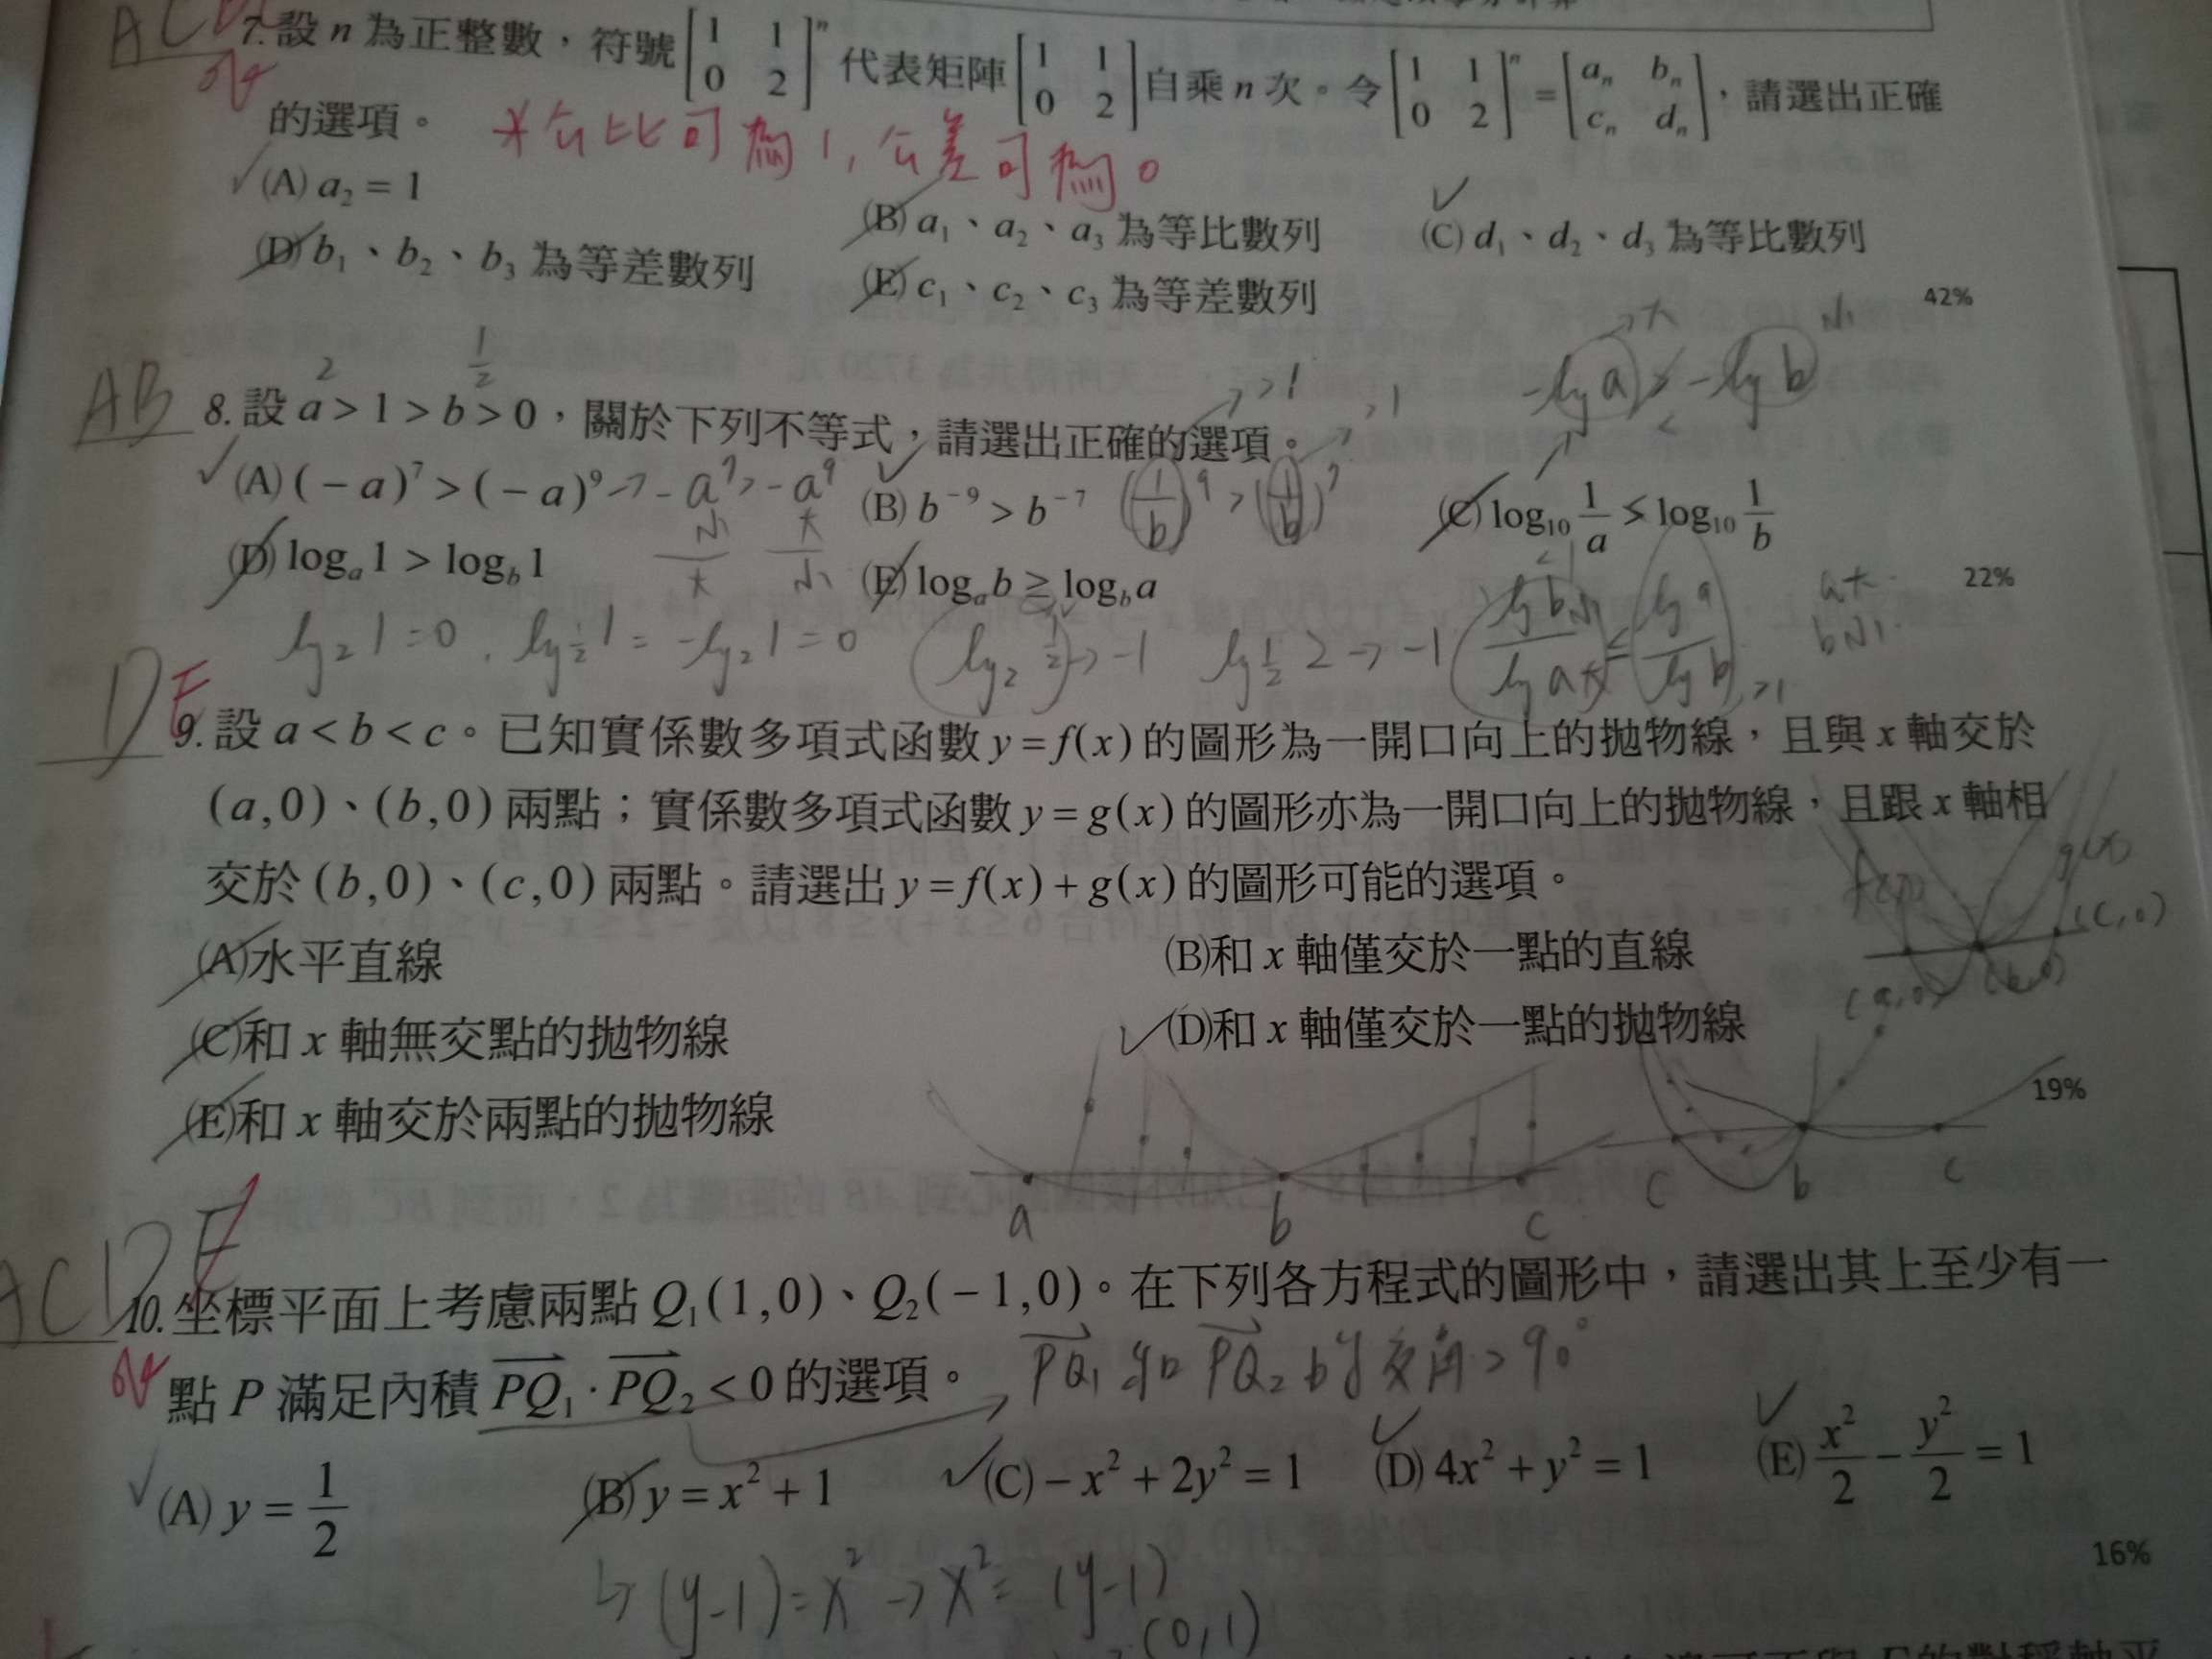 7. 設 n 為正整數，符號 [1 1; 0 2]ⁿ 代表矩陣 [1 1; 0 2] 自乘 n 次。令 [1 1; 0 2]ⁿ = [aₙ bₙ; cₙ dₙ]，請選出正確
的選項。
*公比可為1, 公差可為0
(A) a₂ = 1
(B) a₁、a₂、a₃ 為等比數列
(C) d₁、d₂、d₃ 為等比數列
(D) b₁、b₂、b₃ 為等差數列
(E) c₁、c₂、c₃ 為等差數列
42%
-log a > -log b
2 1/2
AB
8. 設 a > 1 > b > 0，關於下列不等式，請選出正確的選項。
(A) (－a)⁷ > (－a)⁹ → -a⁷ > -a⁹
(B) b⁻⁹ > b⁻⁷ (1/b)⁹ > (1/b)⁷
(C) log₁₀ 1/a ≥ log₁₀ 1/b
(D) logₐ1 > log_b1
(E) logₐb ≥ log_ba
22%
a大
b小
log₂1 = 0, log_1/2 1 = -log₂1 = 0
log₂ 1/2 → -1 log_1/2 2 → -1
DE
9. 設 a < b < c。已知實係數多項式函數 y = f(x) 的圖形為一開口向上的拋物線，且與 x 軸交於
(a,0)、(b,0) 兩點；實係數多項式函數 y = g(x) 的圖形亦為一開口向上的拋物線，且跟 x 軸相
交於 (b,0)、(c,0) 兩點。請選出 y = f(x) + g(x) 的圖形可能的選項。
f(x) g(x)
(a,0) (b,0) (c,0)
(A)水平直線
(B)和 x 軸僅交於一點的直線
(C)和 x 軸無交點的拋物線
(D)和 x 軸僅交於一點的拋物線
(E)和 x 軸交於兩點的拋物線
19%
a b c
c b c
ACDE
10. 坐標平面上考慮兩點 Q₁(1,0)、Q₂(－1,0)。在下列各方程式的圖形中，請選出其上至少有一
點 P 滿足內積 PQ₁．PQ₂ < 0 的選項。
PQ₁和PQ₂的夾角 > 90°
(A) y = 1/2
(B) y = x² + 1
(C) －x² + 2y² = 1
(D) 4x² + y² = 1
(E) x²/2 － y²/2 = 1
16%
↳ (y-1) = x² → x² = (y-1)
(0,1)